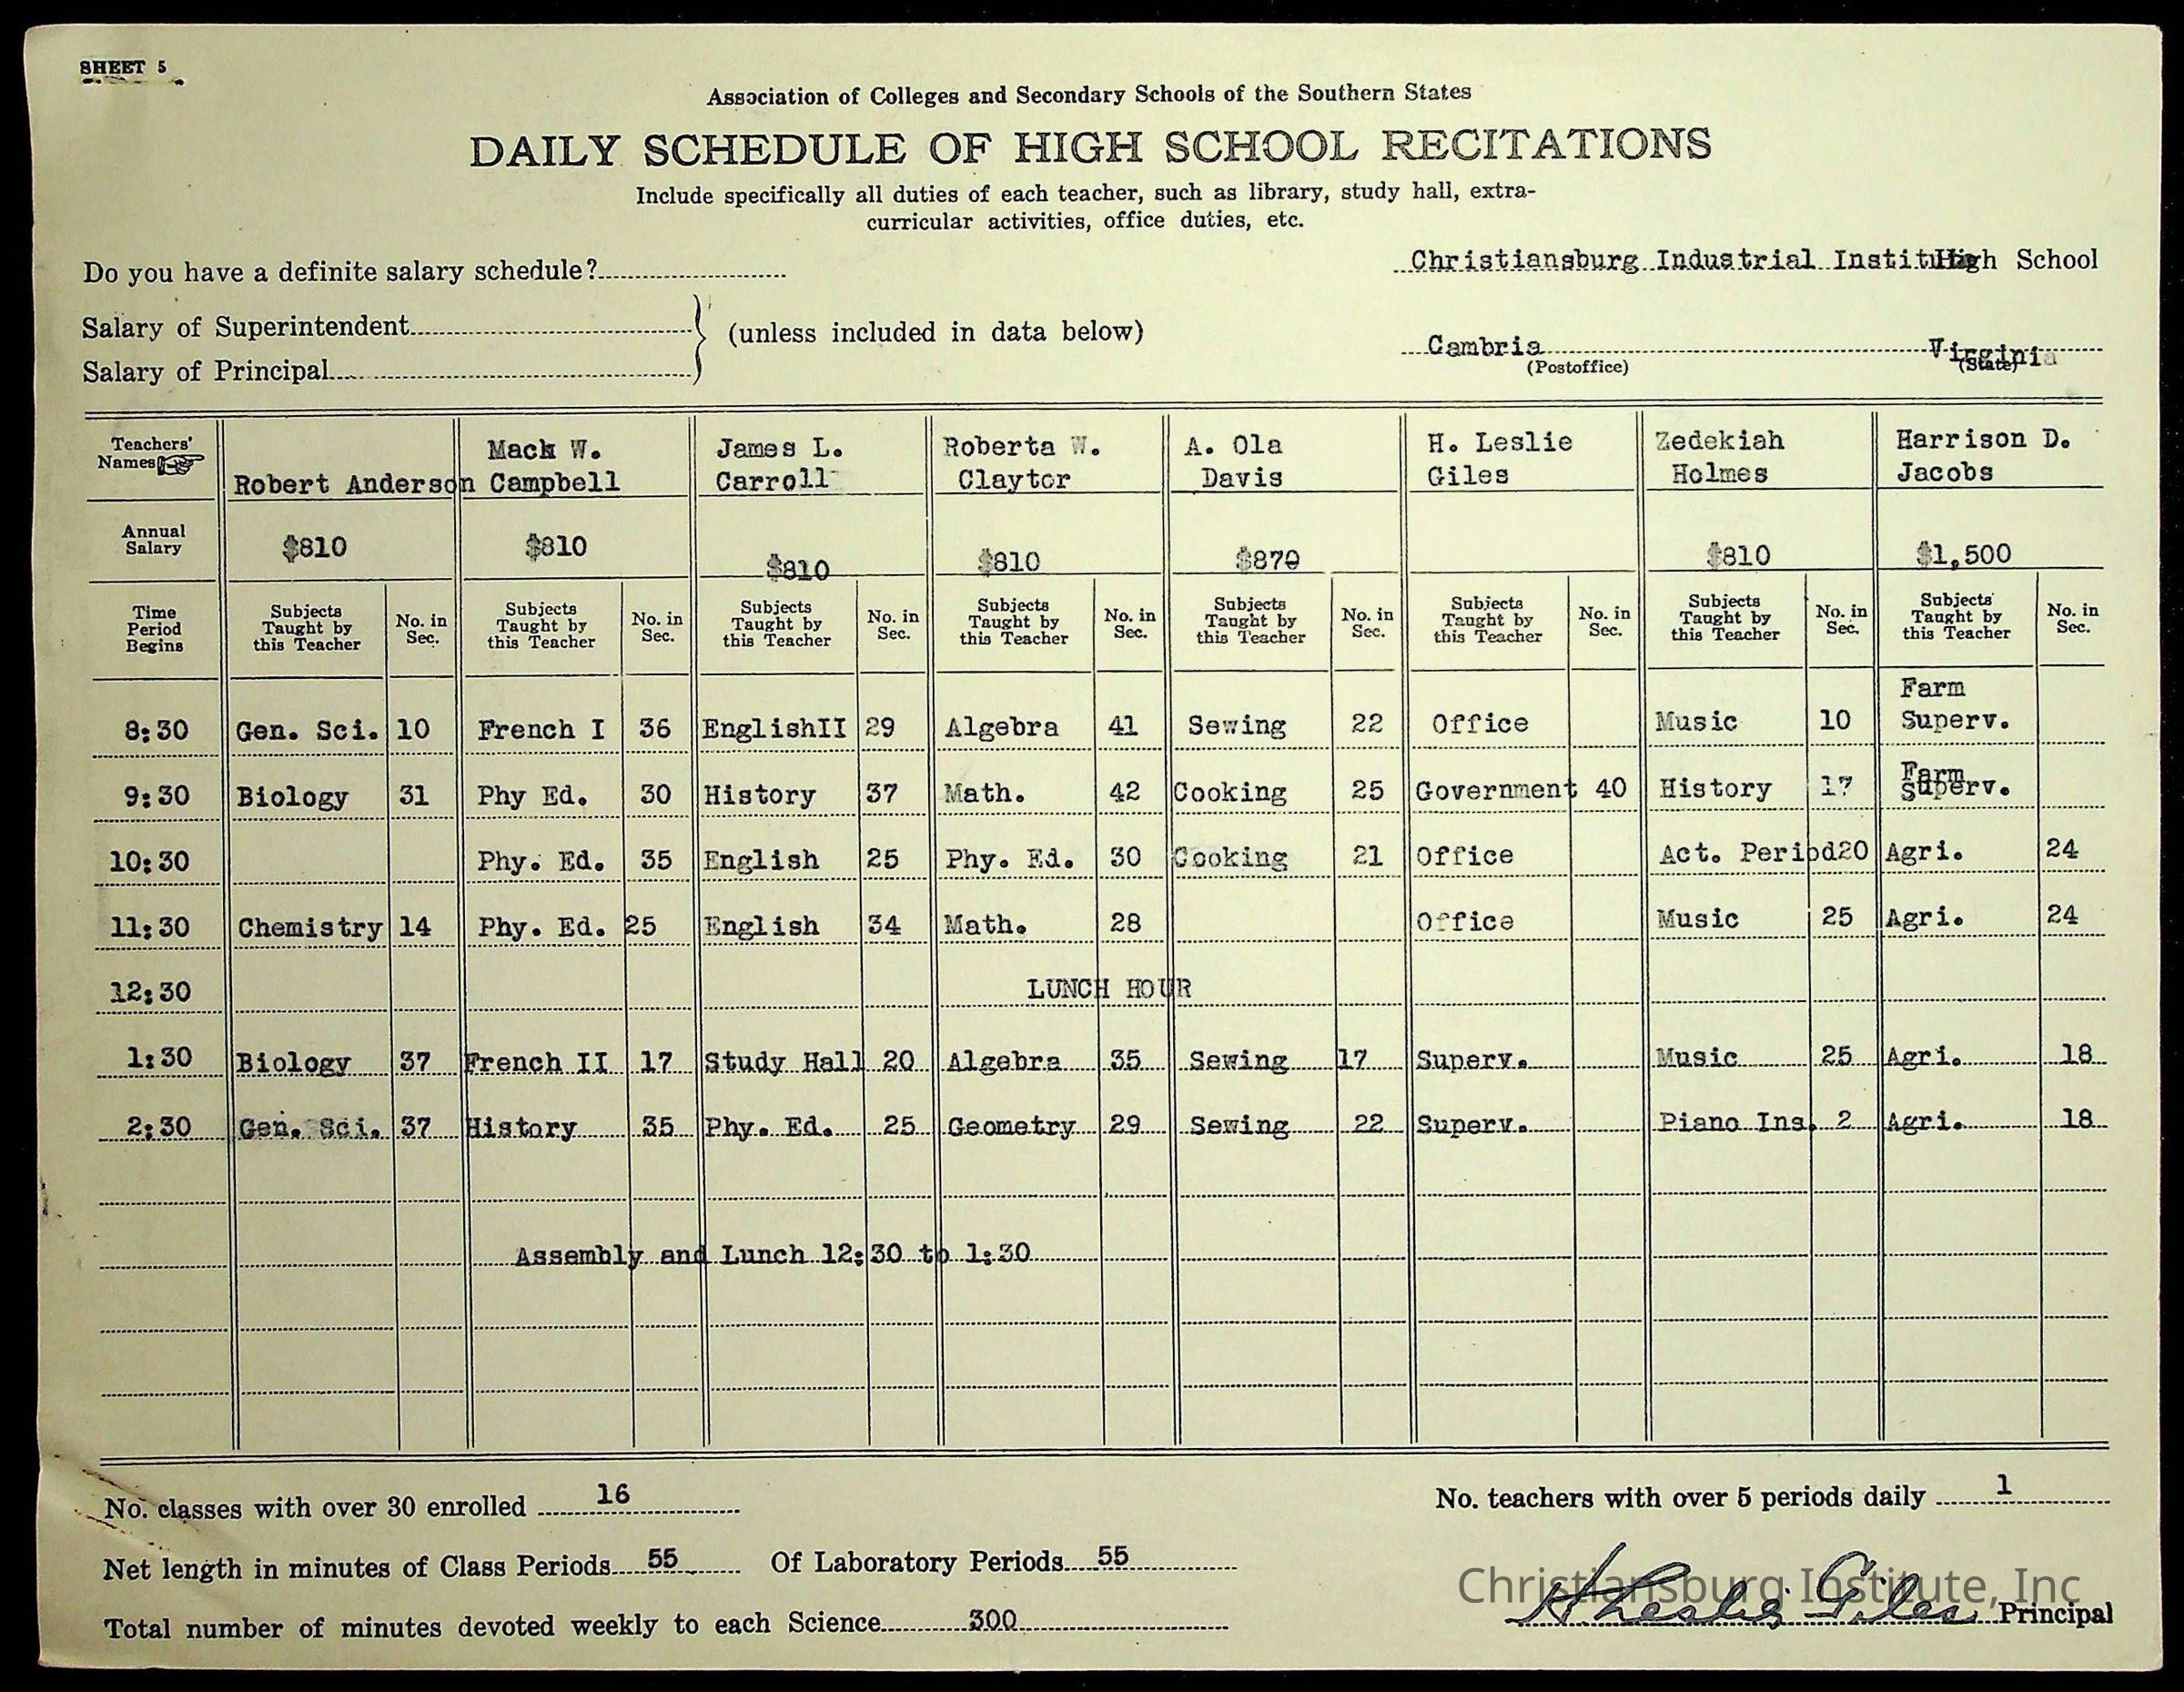 SHEET 5
Association of Colleges and Secondary Schools of the Southern States
DAILY SCHEDULE OF HIGH SCHOOL RECITATIONS
Include specifically all duties of each teacher, such as library, study hall, extra-
curricular activities, office duties, etc.
Do you have a definite salary schedule?
Christiansburg Industrial Institute High School
Salary of Superintendent
(unless included in data below)
Salary of Principal
Cambria Virginia
(Postoffice) (State)
Teachers' Names Robert Anderson Mack W. Campbell James L. Carroll Roberta W. Claytor A. Ola Davis H. Leslie Giles Zedekiah Holmes Harrison D. Jacobs
Annual Salary $810 $810 $810 $810 $870 $810 $1,500
Time Period Begins Subjects Taught by this Teacher No. in Sec. Subjects Taught by this Teacher No. in Sec. Subjects Taught by this Teacher No. in Sec. Subjects Taught by this Teacher No. in Sec. Subjects Taught by this Teacher No. in Sec. Subjects Taught by this Teacher No. in Sec. Subjects Taught by this Teacher No. in Sec. Subjects Taught by this Teacher No. in Sec.
8:30 Gen. Sci. 10 French I 36 EnglishII 29 Algebra 41 Sewing 22 Office Music 10 Farm Superv.
9:30 Biology 31 Phy Ed. 30 History 37 Math. 42 Cooking 25 Government 40 History 17 Farm Superv.
10:30 Phy. Ed. 35 English 25 Phy. Ed. 30 Cooking 21 Office Act. Period20 Agri. 24
11:30 Chemistry 14 Phy. Ed. 25 English 34 Math. 28 Office Music 25 Agri. 24
12:30 LUNCH HOUR
1:30 Biology 37 French II 17 Study Hall 20 Algebra 35 Sewing 17 Superv. Music 25 Agri. 18
2:30 Gen. Sci. 37 History 35 Phy. Ed. 25 Geometry 29 Sewing 22 Superv. Piano Ins. 2 Agri. 18
Assembly and Lunch 12:30 to 1:30
No. classes with over 30 enrolled 16
No. teachers with over 5 periods daily 1
Net length in minutes of Class Periods 55 Of Laboratory Periods 55
Christiansburg Institute, Inc
H Leslie Giles Principal
Total number of minutes devoted weekly to each Science 300